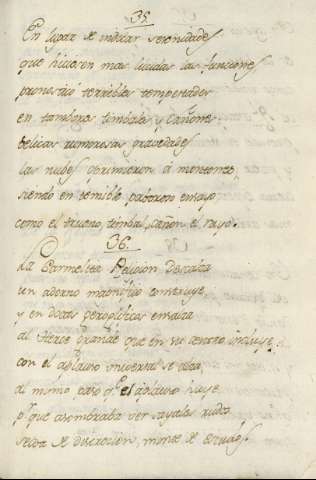 35.
En lugar de indicar serenidades
que hiciesen mas lucidas las funciones
pronosticó terribles tempestades
en tambores timbales y cañones
belicas rumorosas gravedades
las nubes oprimieron a montones
siendo en temible pavoroso ensayo
como el trueno, timbal, cañon el rayo.
36.
La Carmelita Religion Descalza
un adorno magnifico construye,
y en doctas geroglificas ensalza
al Heroe grande que en su centro incluye,
con el aplauso universal se alza,
al mismo paso q.e el aplauso huye
p.r que asombraba ver sayales rudos
selva de discrecion, monte de